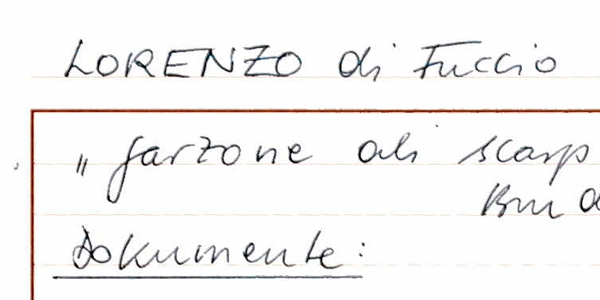 LORENZO di Fuccio
„ garzone di scarp
Dokumente: